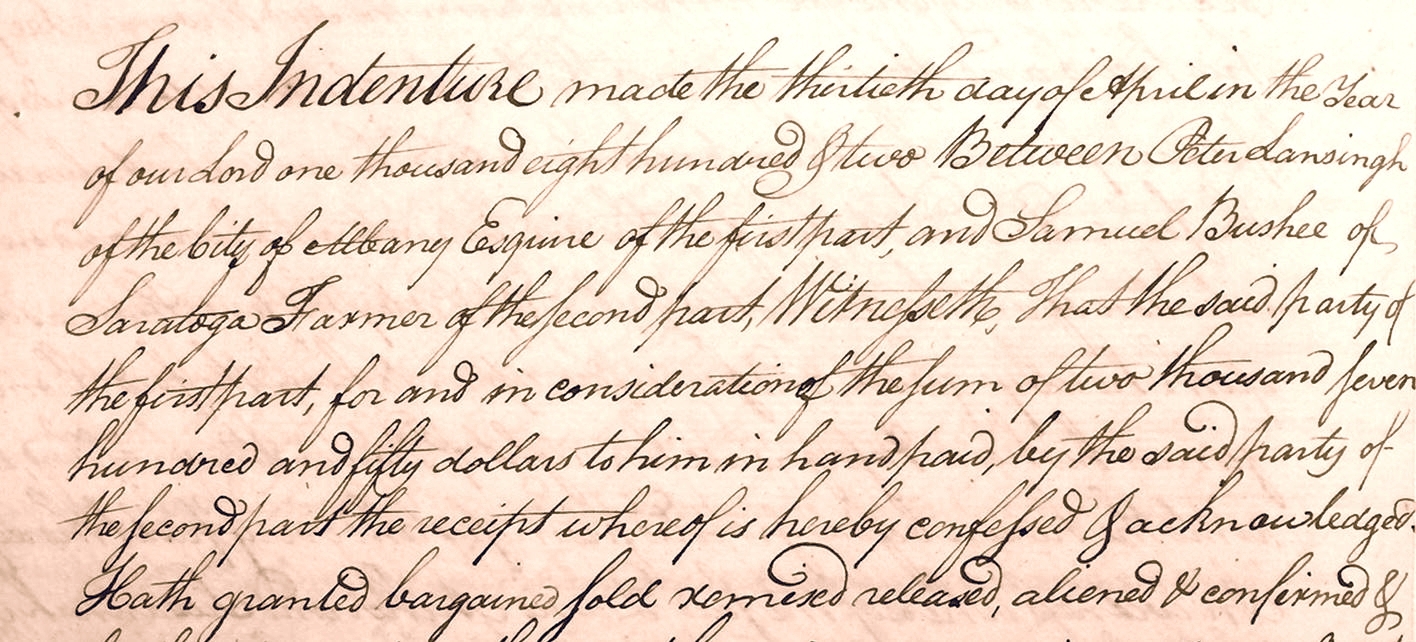 This Indenture made the thirtieth day of April in the Year
of our Lord one thousand eight hundred & two Between Peter Lansingh
of the City of Albany Esquire of the first part, and Samuel Bushee of
Saratoga Farmer of the second part, Witnesseth, That the said party of
the first part, for and in consideration of the sum of two thousand seven
hundred and fifty dollars to him in hand paid, by the said party of
the second part the receipt whereof is hereby confessed & acknowledged.
Hath granted bargained sold remised released, aliened & confirmed &